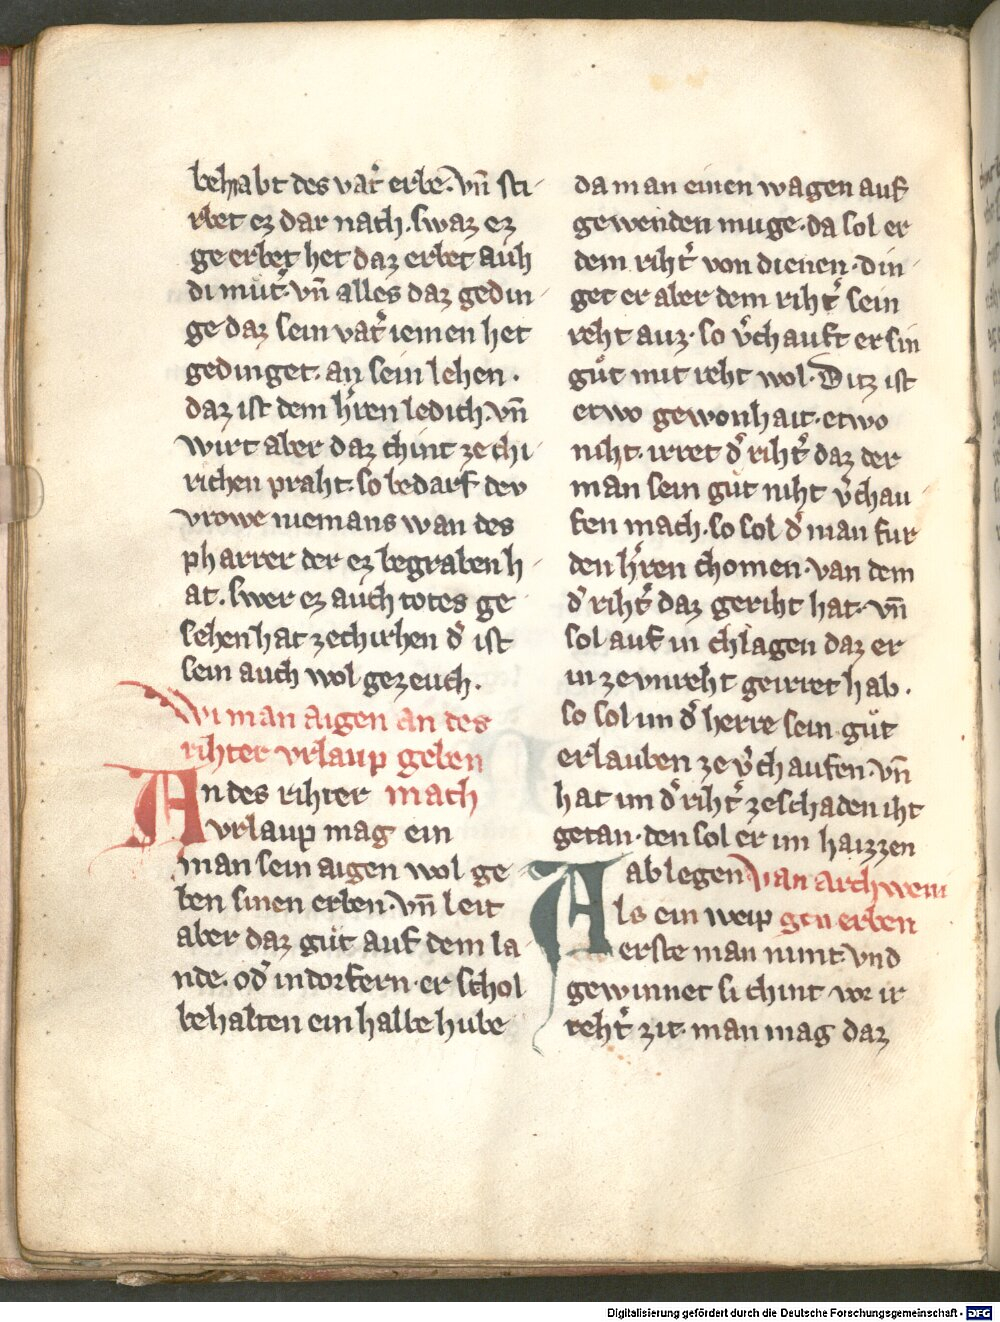 behabt des vat͛ erbe. vn̄ sti
rbet ez dar nach. swaz ez
ge erbet het daz erbet auh
di mut͛. vn̄ alles daz gedin
ge daz sein vat͛ iemen het
gedinget. an sein lehen.
daz ist dem h͛ren ledich. vn̄
wirt aber daz chint ze chi
richen praht. so bedarf dev
vrowe niemans wan des
pharrer der ez begraben h
at. swer ez auch totes ge
sehen hat ze chirhen d͛ ist
sein auch wol gezeuch.
Wi man aigen an des
rihter vrlaup geben
An des rihter mach
vrlaup mag ein
man sein aigen wol ge
ben sinen erben. vn̄ leit
aber daz guͦt auf dem la
nde. od͛ in dorfern. er schol
behalten ein halbe hube
da man einen wagen auf
gewenden muge. da sol er
dem riht͛ von dienen. din
get er aber dem riht͛ sein
reht auz. so v͛chauft er sin
guͦt mit reht wol. Ditz ist
etwo gewonhait. etwo
niht. irret d͛ riht͛ daz der
man sein guͦt niht v͛chau
fen mach. so sol d͛ man fur
den h͛ren chomen. van dem
d͛ riht͛ daz geriht hat. vn̄
sol auf in chlagen daz er
in ze vnreht geirret hab.
so sol im d͛ herre sein guͦt
erlauben ze v͛chaufen. vn̄
hat im d͛ riht͛ ze schaden iht
getan. den sol er im haizzen
ab legen Van arch weni
Als ein weip gen erben
erste man nimt vnd
gewinnet si chint vor ir
reht͛ zit. man mag daz
Digitalisierung gefördert durch die Deutsche Forschungsgemeinschaft - DFG